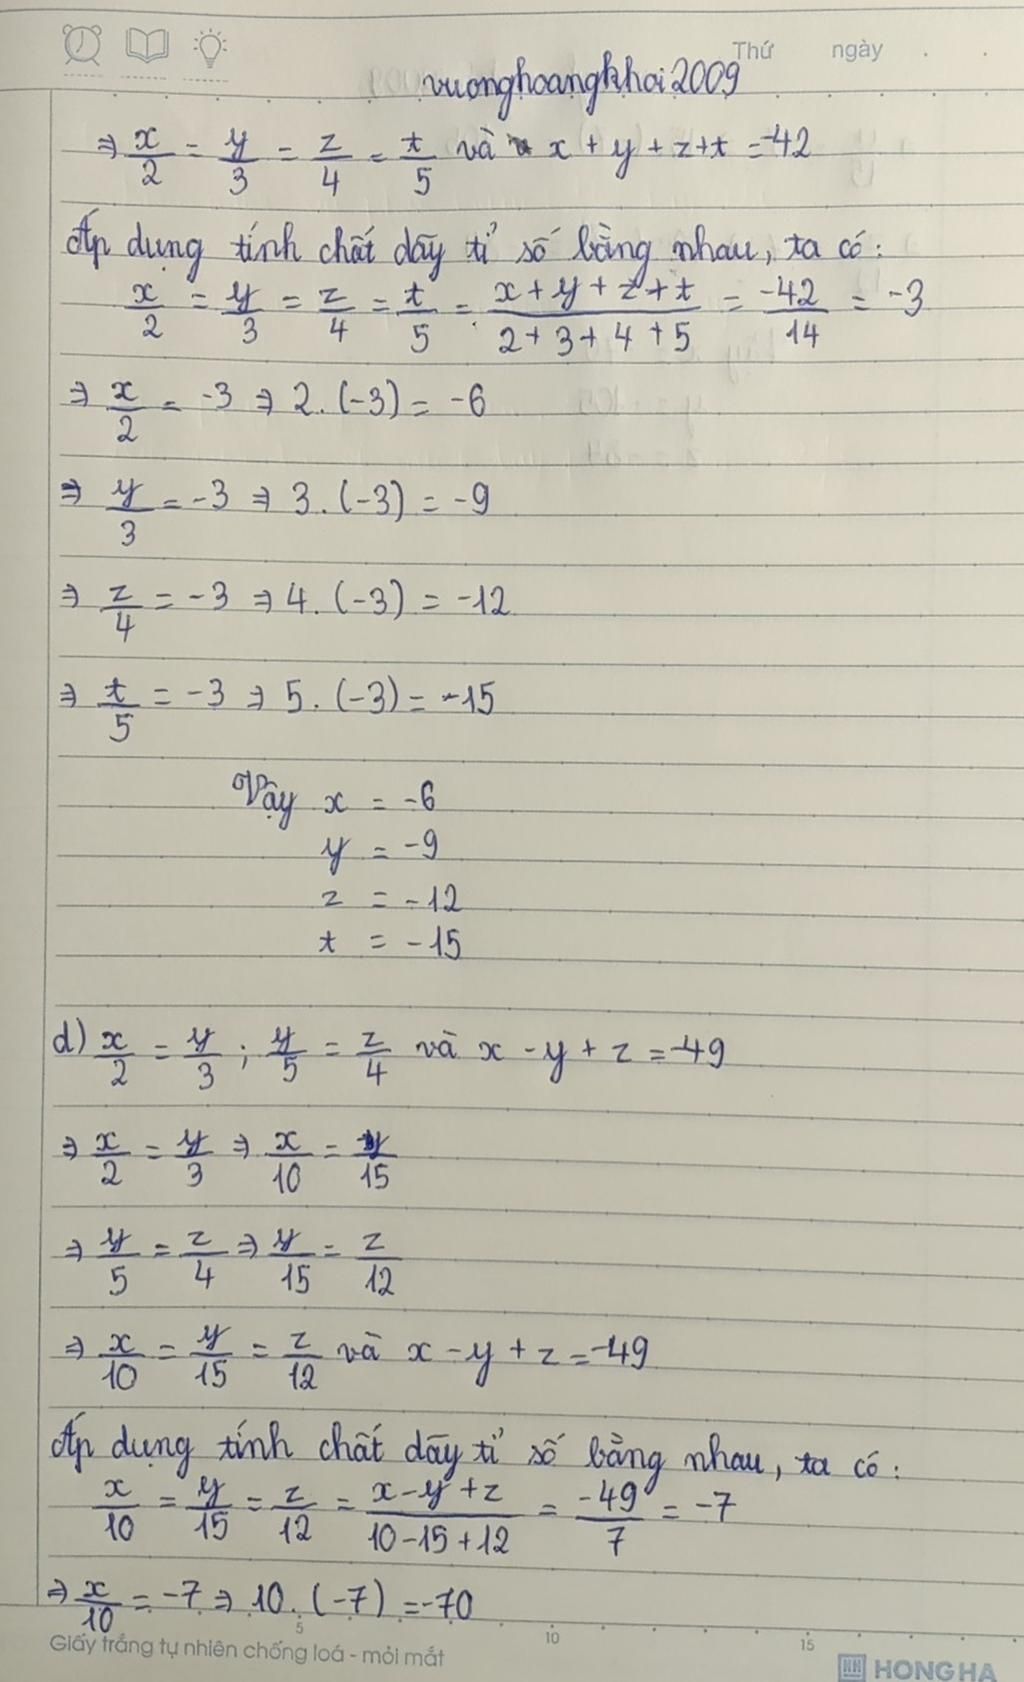 Thứ ngày
vuonghoangkhai2009
⇒ x/2 = y/3 = z/4 = t/5 và x + y + z + t = -42
Áp dụng tính chất dãy tỉ số bằng nhau, ta có:
x/2 = y/3 = z/4 = t/5 = (x + y + z + t)/(2 + 3 + 4 + 5) = -42/14 = -3
⇒ x/2 = -3 ⇒ 2. (-3) = -6
⇒ y/3 = -3 ⇒ 3. (-3) = -9
⇒ z/4 = -3 ⇒ 4. (-3) = -12
⇒ t/5 = -3 ⇒ 5. (-3) = -15
Vậy x = -6
y = -9
z = -12
t = -15
d) x/2 = y/3 ; y/5 = z/4 và x - y + z = -49
⇒ x/2 = y/3 ⇒ x/10 = y/15
⇒ y/5 = z/4 ⇒ y/15 = z/12
⇒ x/10 = y/15 = z/12 và x - y + z = -49
Áp dụng tính chất dãy tỉ số bằng nhau, ta có:
x/10 = y/15 = z/12 = (x - y + z)/(10 - 15 + 12) = -49/7 = -7
⇒ x/10 = -7 ⇒ 10. (-7) = -70
5 10 15
Giấy trắng tự nhiên chống loá - mỏi mắt
HH HONG HA